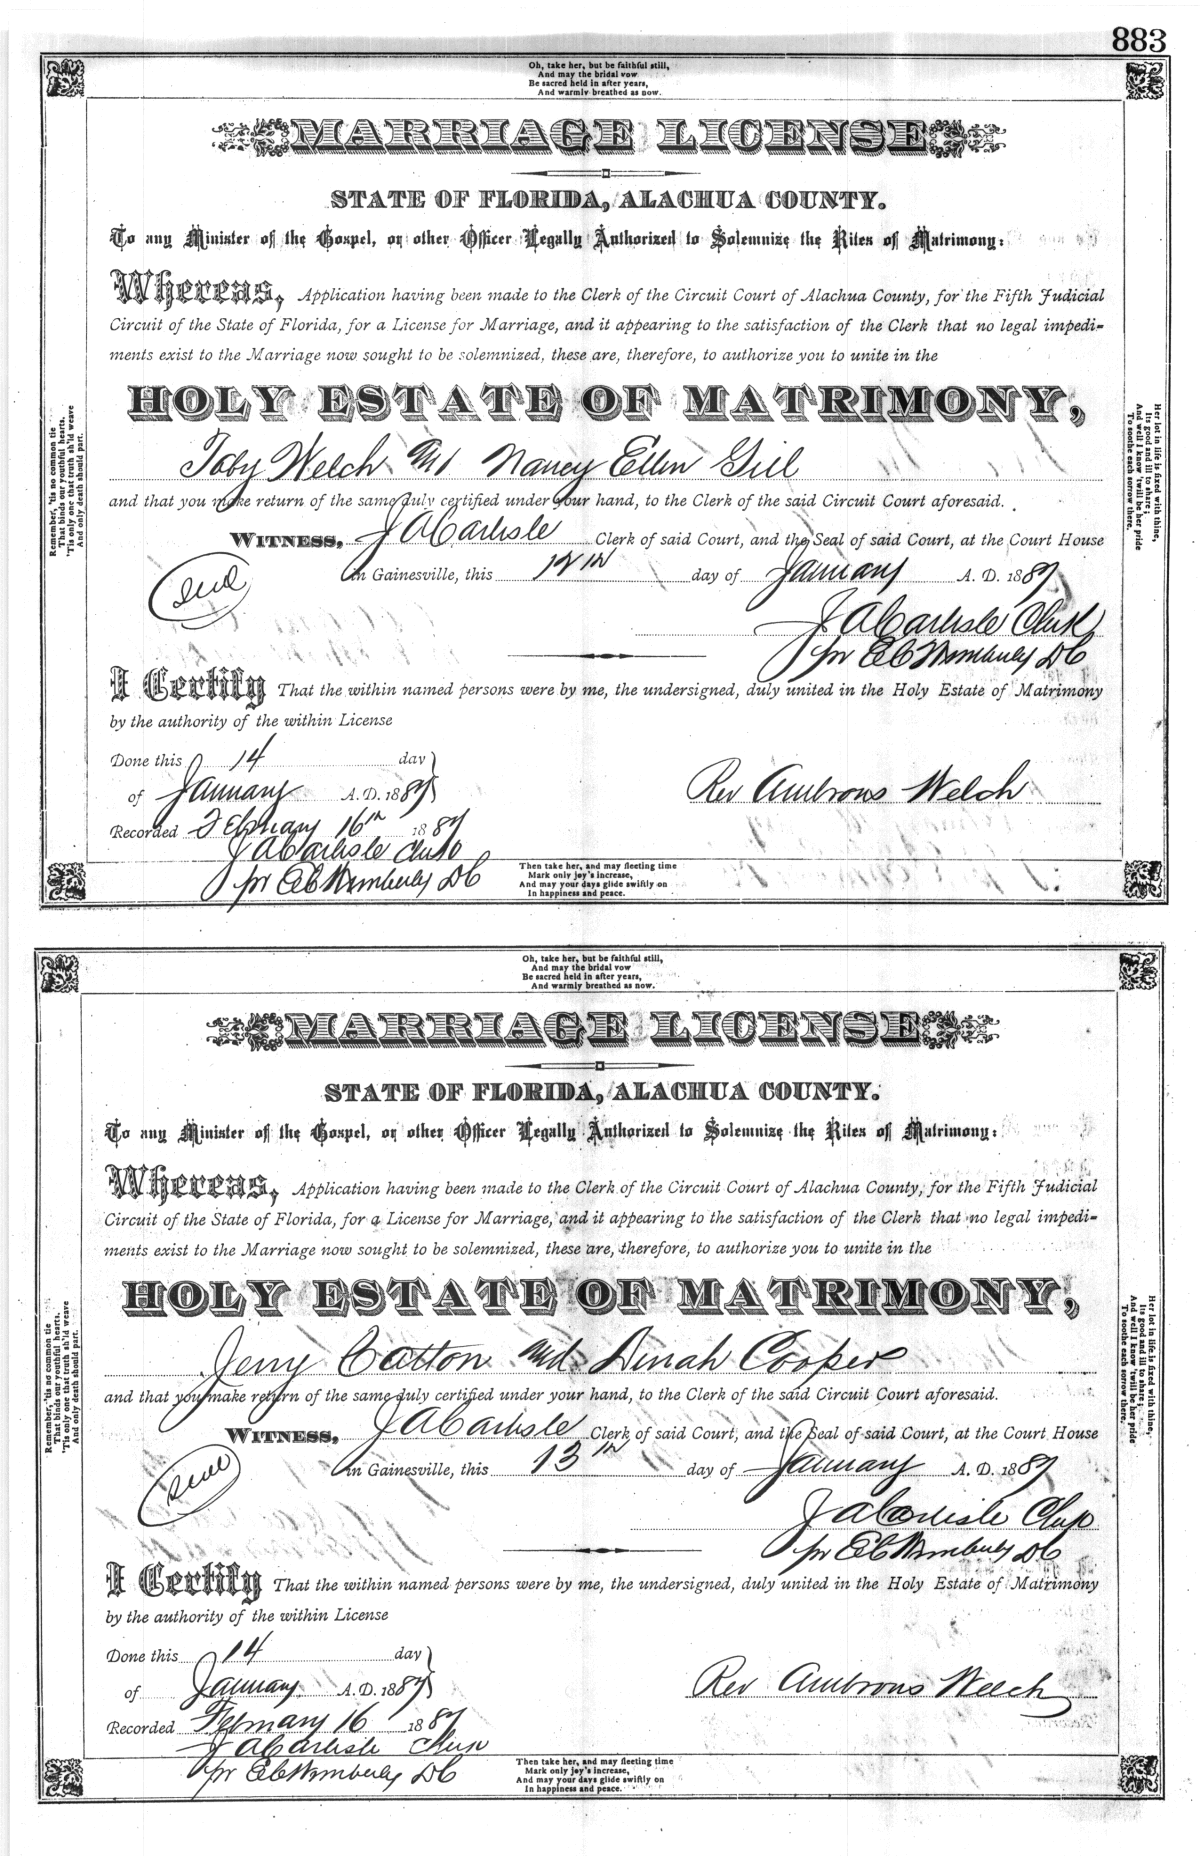 883
Oh, take her, but be faithful still,
And may the bridal vow
Be sacred held in after years,
And warmly breathed as now.
MARRIAGE LICENSE
STATE OF FLORIDA, ALACHUA COUNTY.
To any Minister of the Gospel, or other Officer Legally Authorized to Solemnize the Rites of Matrimony:
Whereas, Application having been made to the Clerk of the Circuit Court of Alachua County, for the Fifth Judicial
Circuit of the State of Florida, for a License for Marriage, and it appearing to the satisfaction of the Clerk that no legal impedi-
ments exist to the Marriage now sought to be solemnized, these are, therefore, to authorize you to unite in the
HOLY ESTATE OF MATRIMONY,
Toby Welch and Nancy Ellen Gill
and that you make return of the same duly certified under your hand, to the Clerk of the said Circuit Court aforesaid.
WITNESS, J A Carlisle Clerk of said Court, and the Seal of said Court, at the Court House
(Seal) in Gainesville, this 12th day of January A. D. 1887
J A Carlisle Clerk
pr E C Wimberly DC
I Certify That the within named persons were by me, the undersigned, duly united in the Holy Estate of Matrimony
by the authority of the within License
Done this 14 day
of January A. D. 1887
Rev Ambrous Welch
Recorded February 16th 1887
J A Carlisle Clerk
pr E C Wimberly DC
Remember, 'tis no common tie
That binds our youthful hearts.
'Tis only one that truth sh'ld weave
And only death should part.
Her lot in life is fixed with thine,
Its good and ill to share;
And well I know 'twill be her pride
To soothe each sorrow there.
Then take her, and may fleeting time
Mark only joy's increase,
And may your days glide swiftly on
In happiness and peace.
Oh, take her, but be faithful still,
And may the bridal vow
Be sacred held in after years,
And warmly breathed as now.
MARRIAGE LICENSE
STATE OF FLORIDA, ALACHUA COUNTY.
To any Minister of the Gospel, or other Officer Legally Authorized to Solemnize the Rites of Matrimony:
Whereas, Application having been made to the Clerk of the Circuit Court of Alachua County, for the Fifth Judicial
Circuit of the State of Florida, for a License for Marriage, and it appearing to the satisfaction of the Clerk that no legal impedi-
ments exist to the Marriage now sought to be solemnized, these are, therefore, to authorize you to unite in the
HOLY ESTATE OF MATRIMONY,
Jerry Catton and Dinah Cooper
and that you make return of the same duly certified under your hand, to the Clerk of the said Circuit Court aforesaid.
WITNESS, J A Carlisle Clerk of said Court, and the Seal of said Court, at the Court House
(Seal) in Gainesville, this 13th day of January A. D. 1887
J A Carlisle Clerk
pr E C Wimberly DC
I Certify That the within named persons were by me, the undersigned, duly united in the Holy Estate of Matrimony
by the authority of the within License
Done this 14 day
of January A. D. 1887
Rev Ambrous Welch
Recorded February 16 1887
J A Carlisle Clerk
pr E C Wimberly DC
Remember, 'tis no common tie
That binds our youthful hearts
'Tis only one that truth sh'ld weave
And only death should part.
Her lot in life is fixed with thine,
Its good and ill to share;
And well I know 'twill be her pride
To soothe each sorrow there.
Then take her, and may fleeting time
Mark only joy's increase,
And may your days glide swiftly on
In happiness and peace.